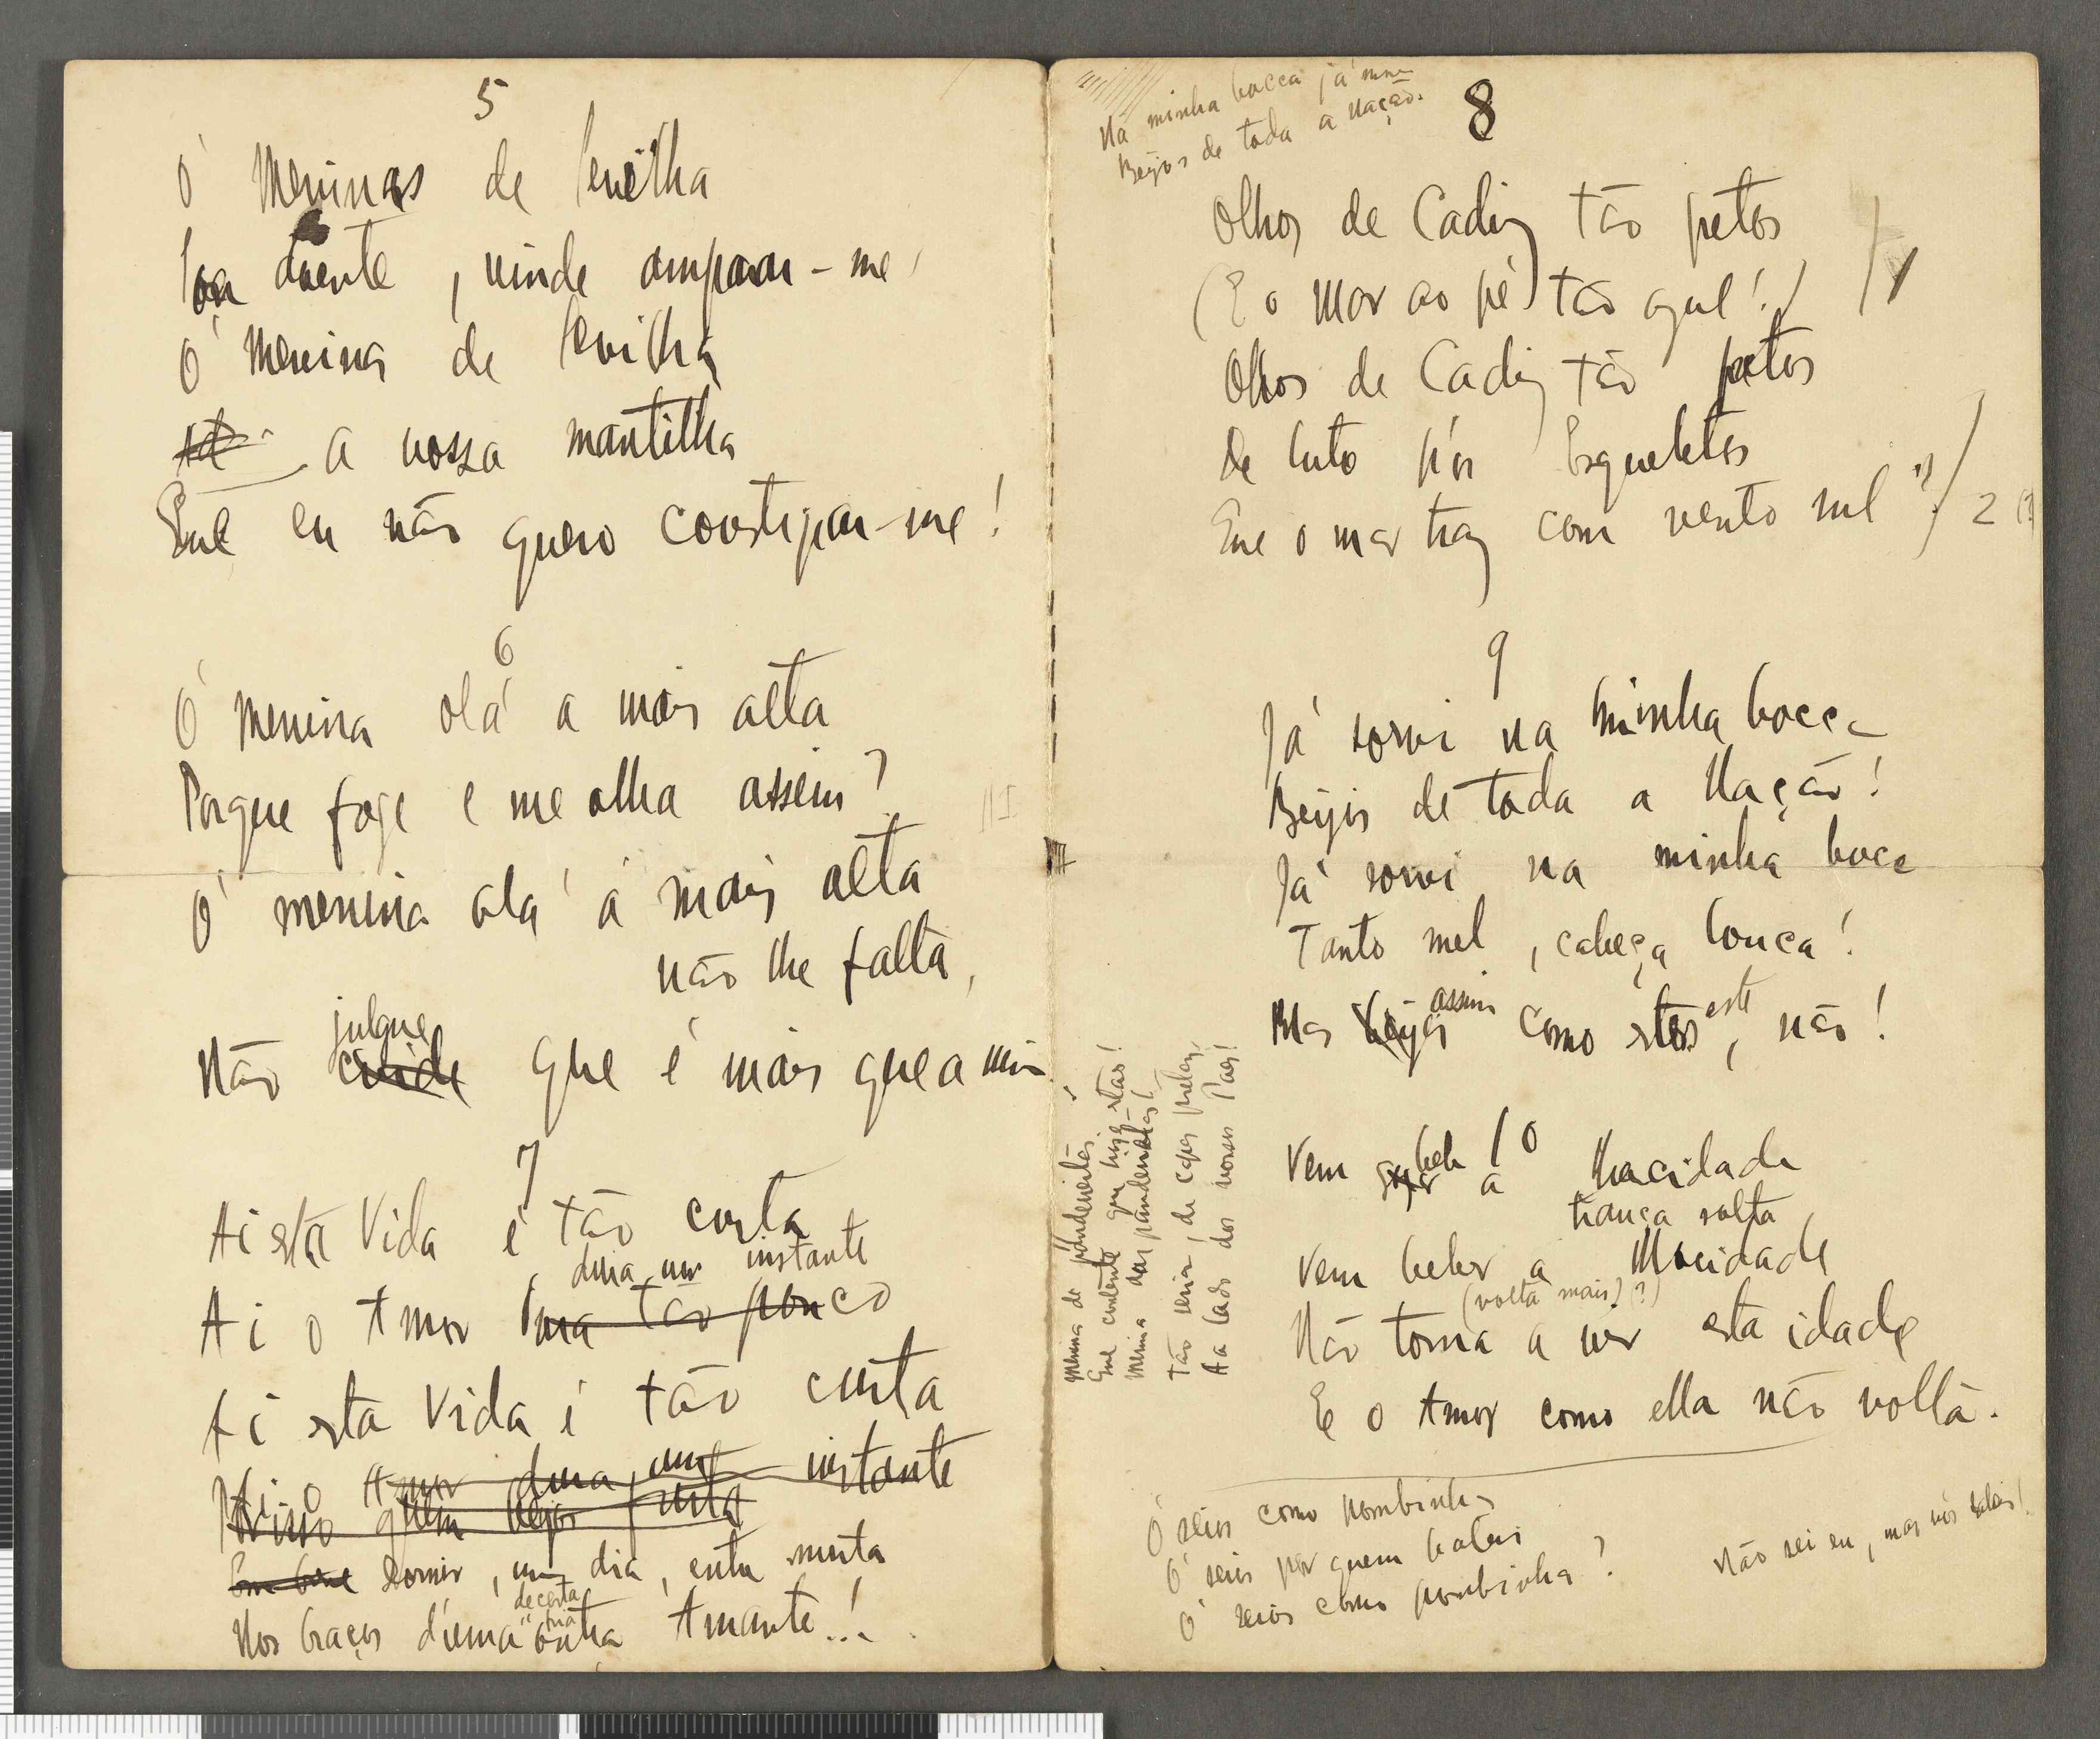 5
Ó Meninas de Sevilha
Sou doente, vinde amparar-me,
Ó Meninas de Sevilha
a vossa mantilha
Que eu não quero constipar-me!
6
Ó Menina olá a mais alta
Porque foge e me olha assim?
Ó menina olá á mais alta
não lhe falta,
julgue
Não cuide que é mais que a mim
7
Ai esta Vida é tão curta
dura um instante
Ai o Amor dura tão pouco
Ai esta Vida é tão curta
Ai o Amor dura um instante
Dormir, um dia, entre murta
decerta
fria
Nos braços d'uma outra Amante!..
Na minha bocca já
Beijos de toda a Nação.
8
Olhos de Cadiz tão pretos
(E o Mar ao pé tão azul!) 1
Olhos de Cadiz tão pretos
De luto pór Esqueletos
Que o mar traz com vento sul? 2 (?)
9
Já sorvi na minha bocca
Beijos de toda a Nação!
Já sorvi na minha bocca
Tanto mel, cabeça louca!
assim este
Mas beijos como estes, não!
10
Vem beber a Mocidade
trança solta,
Vem beber a Mocidade
(volta mais) (?)
Não torna a ver esta idade
E o Amor como ella não volta.
Ó seios como pombinhas
Ó seios por quem bateis
Ó seios como pombinhas?
Não sei eu, mas vós sabeis!
Menina de pandeiretas
Que contente que hiz-estão!
Menina das pandeiretas!
Tão séria, de capas pretas,
Ao lado dos nossos Paes!